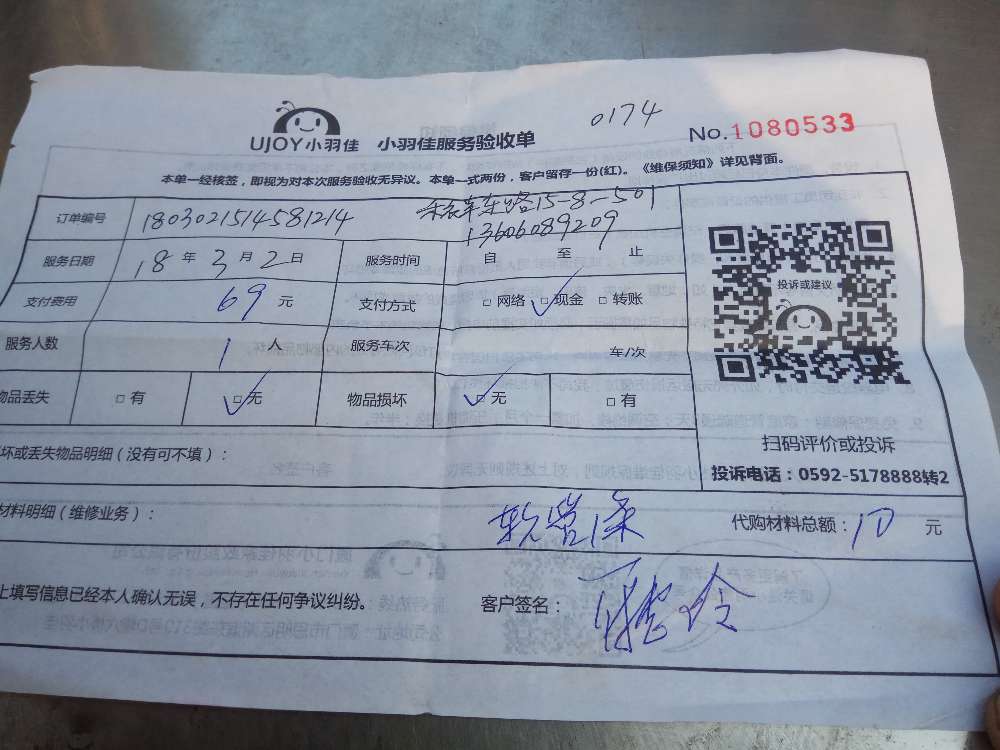 0174
UJOY小羽佳 小羽佳服务验收单 No.1080533
本单一经核签，即视为对本次服务验收无异议。本单一式两份，客户留存一份(红)。《维保须知》详见背面。
订单编号 1803021514581214 东路15-8-501
13606089209
服务日期 18 年 3 月 2 日 服务时间 自 至 止
支付费用 69 元 支付方式 □ 网络 □ 现金 □ 转账
服务人数 1 人 服务车次 车/次
物品丢失 □ 有 □ 无 物品损坏 □ 无 □ 有
投诉或建议
扫码评价或投诉
投诉电话：0592-5178888转2
坏或丢失物品明细（没有可不填）：
材料明细（维修业务）： 软管1条 代购材料总额：10 元
上填写信息已经本人确认无误，不存在任何争议纠纷。 客户签名：